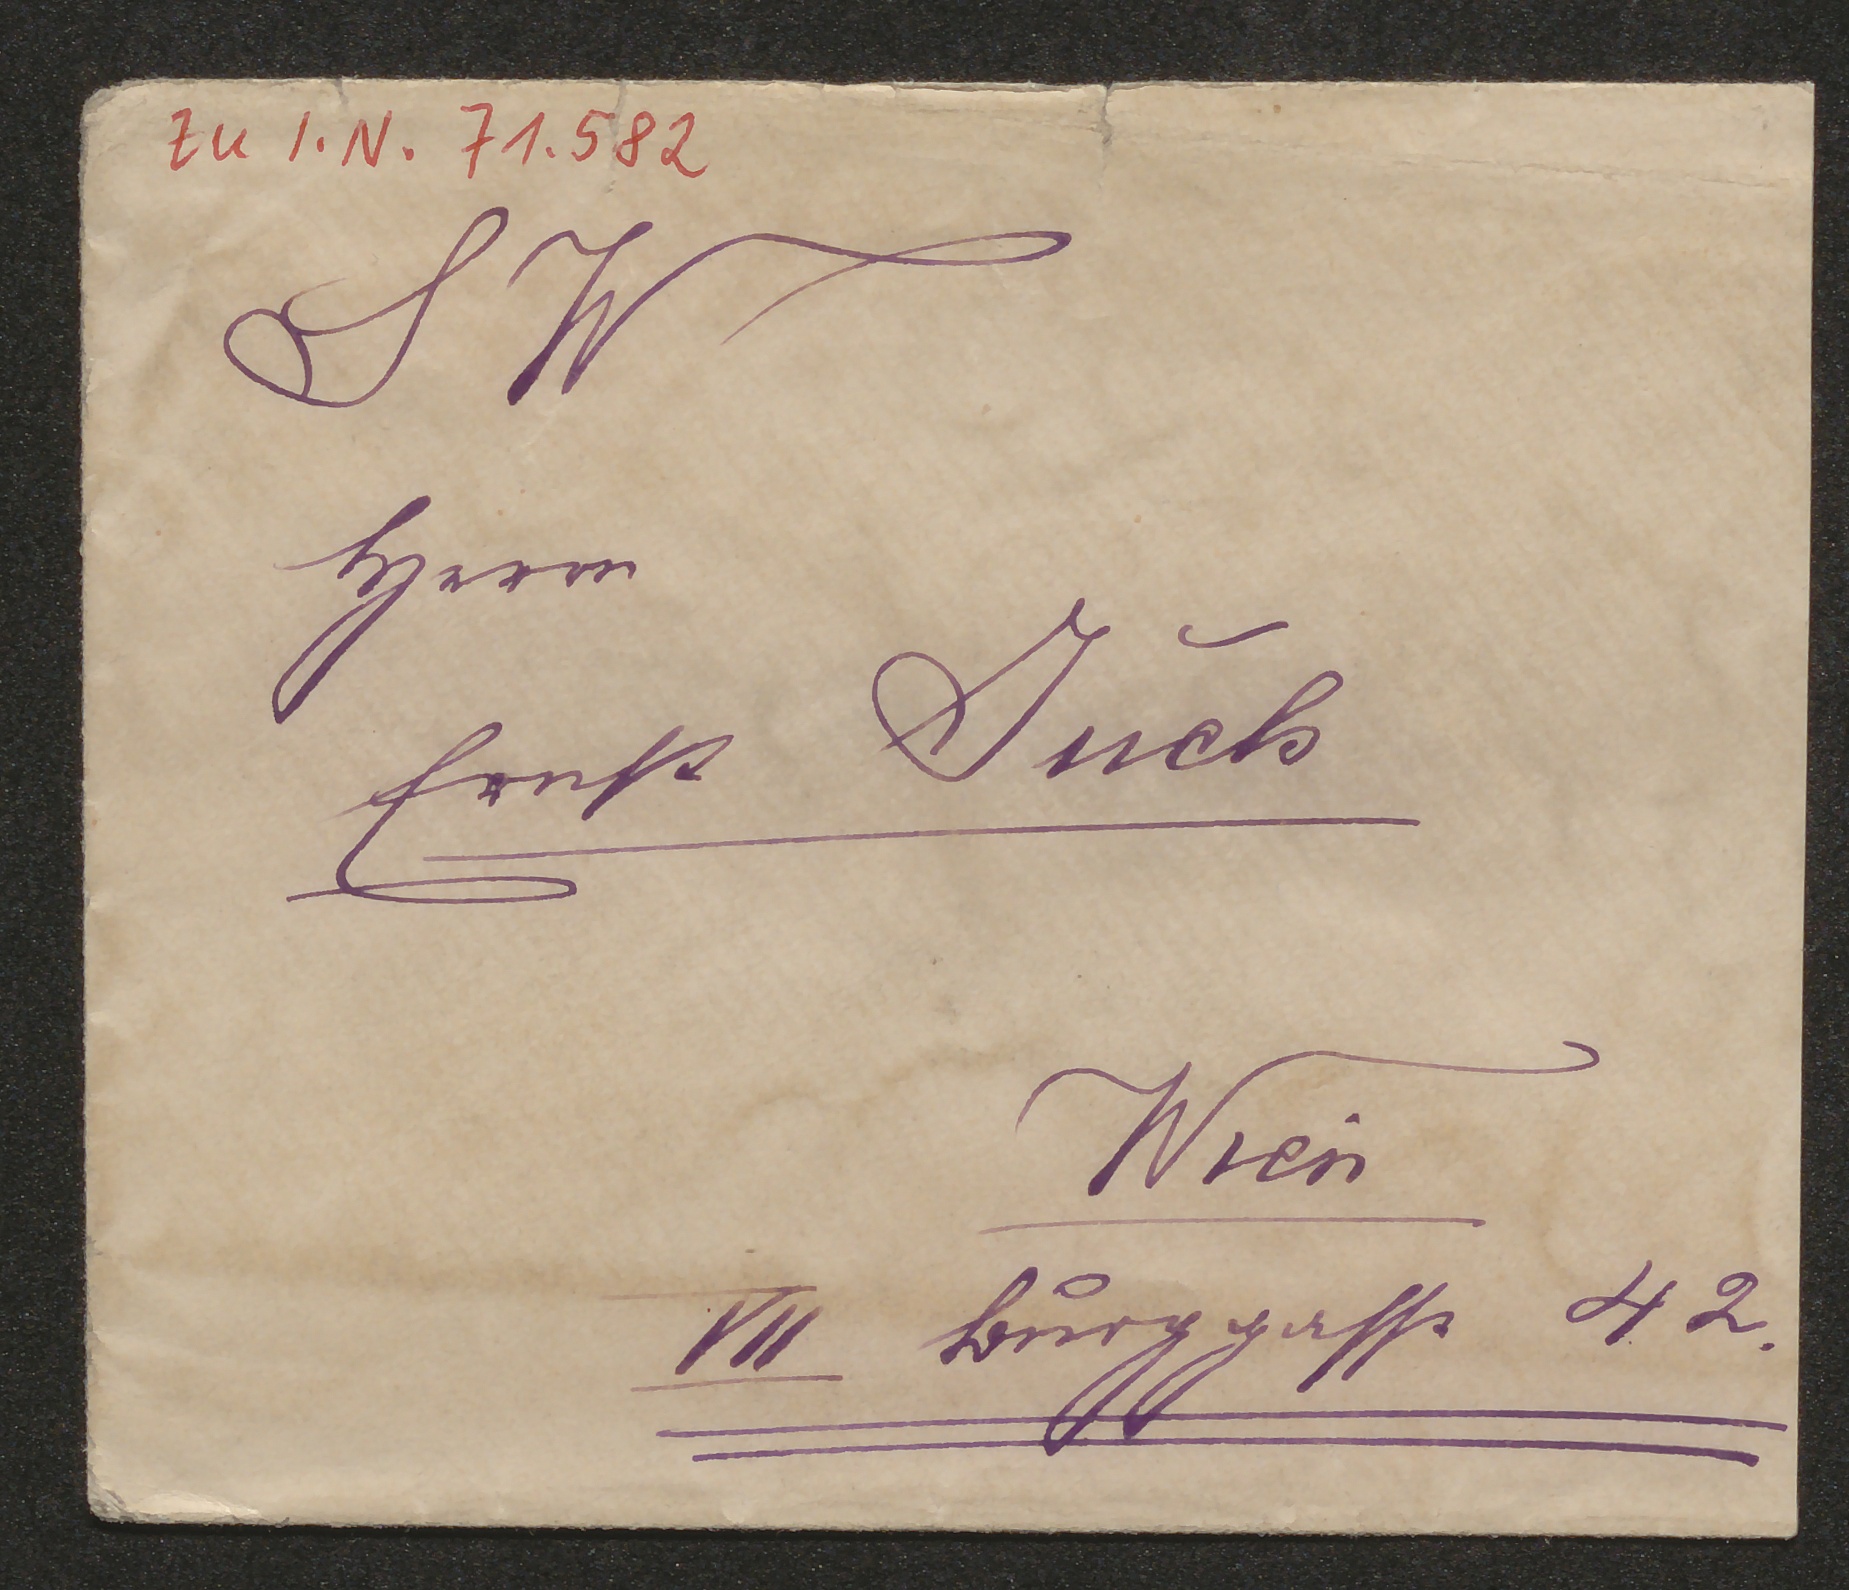 Zu I.N. 71.582
SW
Herrn
Ernst Juck
Wien
VII Burggasse 42.